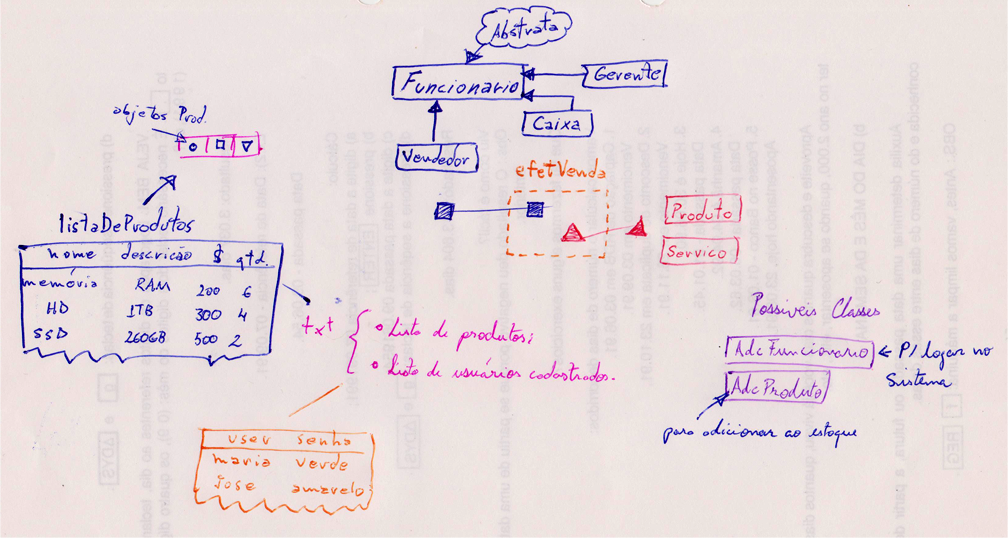 Abstrata
Funcionario
Gerente
Caixa
Vendedor
objetos Prod.
listaDeProdutos
nome descricão $ qtd.
memória RAM 200 6
HD 1TB 300 4
SSD 260GB 500 2
efetVenda
Produto
Servico
txt
• Lista de produtos;
• Lista de usuários cadastrados.
user senha
maria verde
jose amarelo
Possiveis Classes
AdcFuncionario ← P/ logar no
Sistema
AdcProduto
para adicionar ao estoque